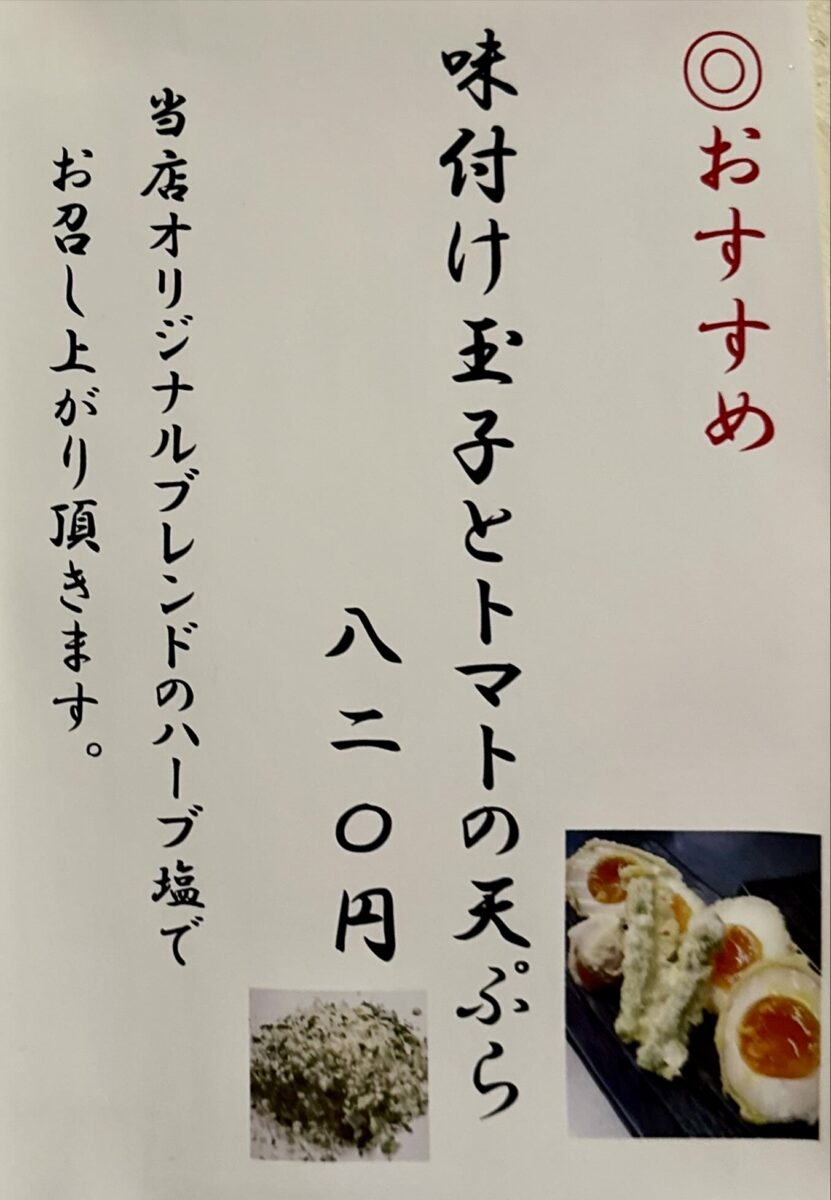 ◎おすすめ
味付け玉子とトマトの天ぷら
八二〇円
当店オリジナルブレンドのハーブ塩で
お召し上がり頂きます。